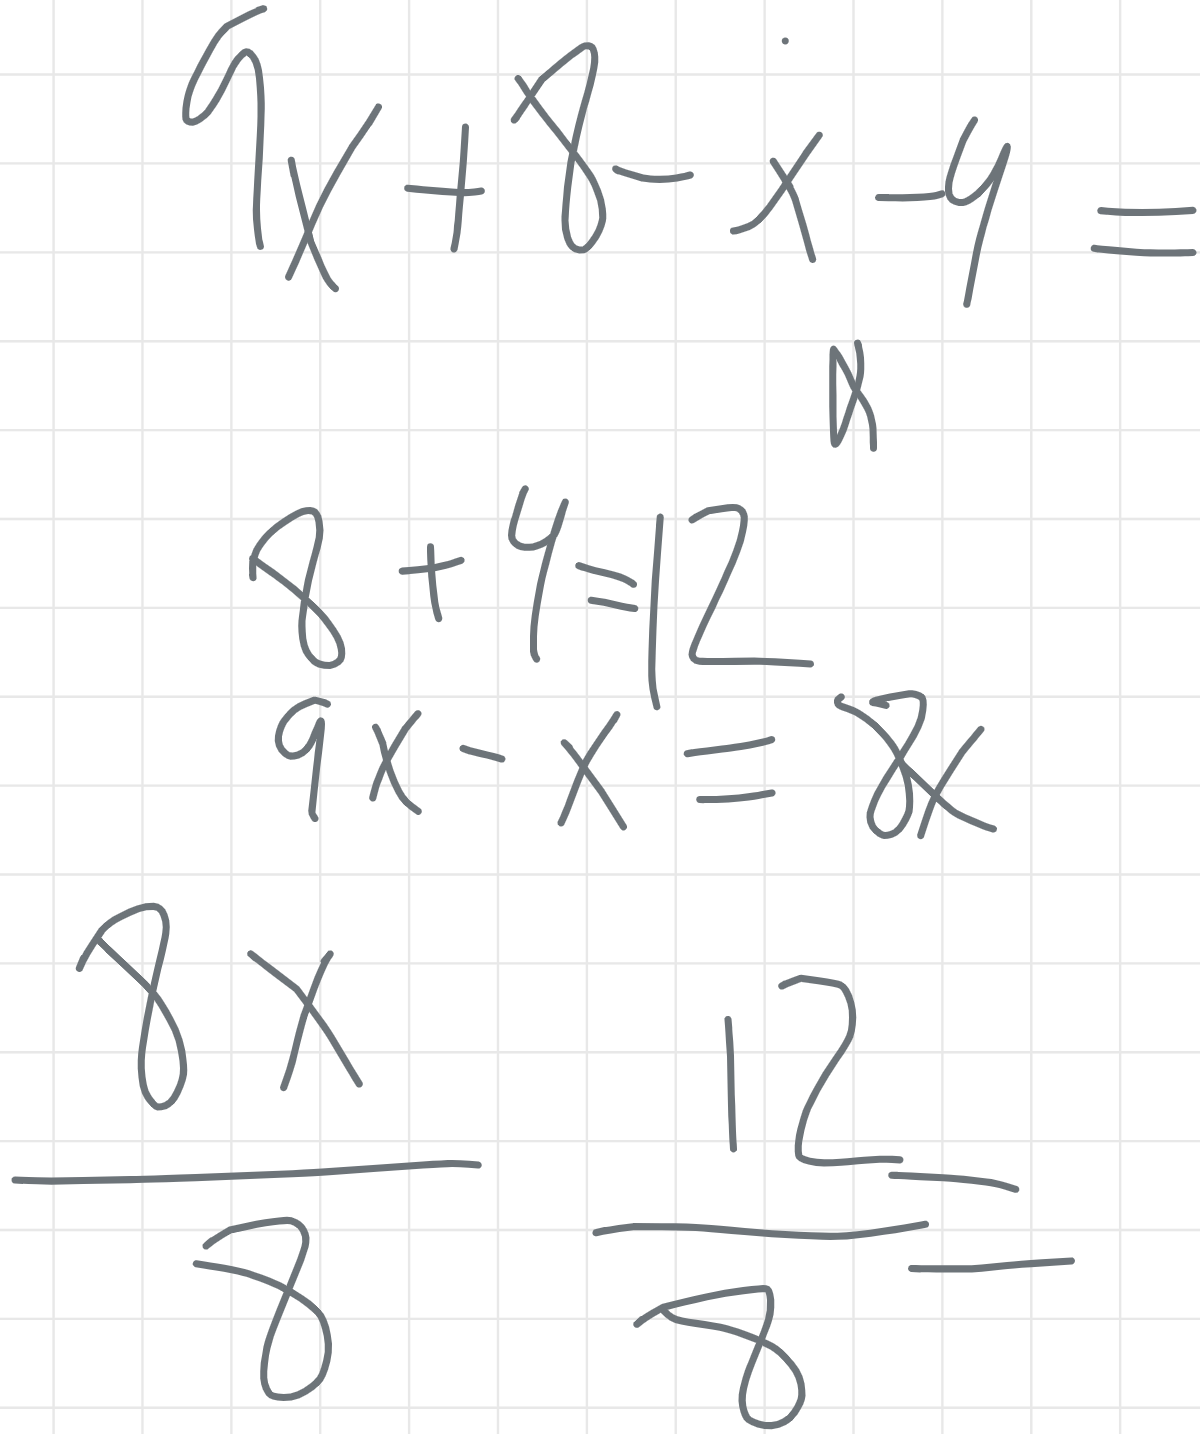 9x + 8 - x - 4 =
8 + 4 = 12
9x - x = 8x
8x 12 =
8 8